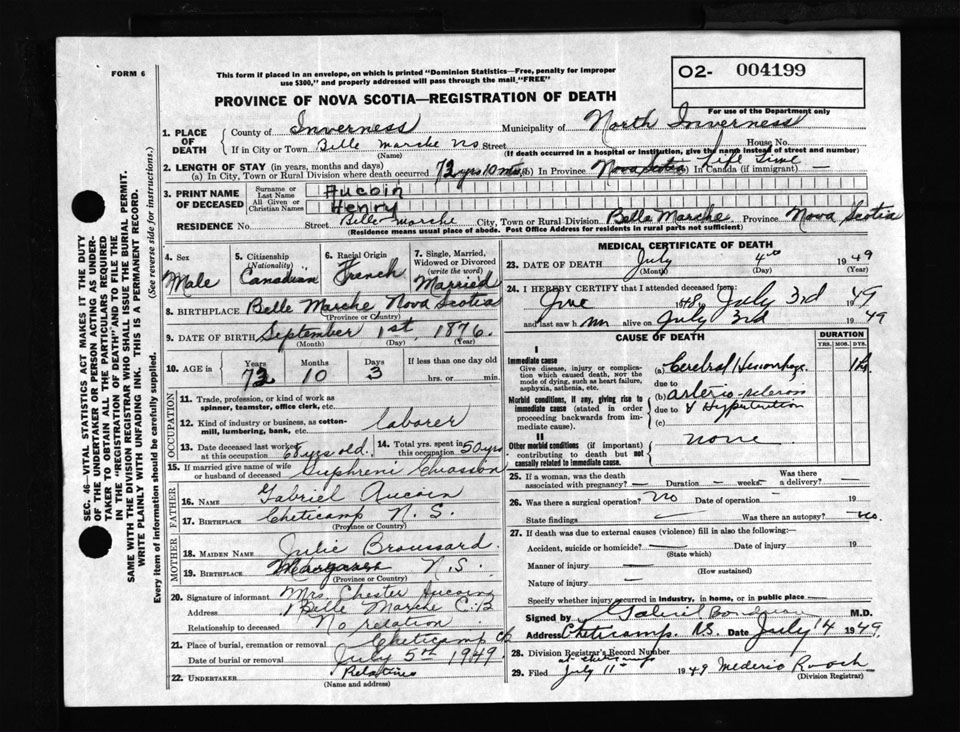 FORM 6
This form if placed in an envelope, on which is printed "Dominion Statistics—Free, penalty for improper
use $300," and properly addressed will pass through the mail "FREE"
O2- 004199
For use of the Department only
PROVINCE OF NOVA SCOTIA—REGISTRATION OF DEATH
SEC. 46—VITAL STATISTICS ACT MAKES IT THE DUTY
OF THE UNDERTAKER OR PERSON ACTING AS UNDER-
TAKER TO OBTAIN ALL THE PARTICULARS REQUIRED
IN THE "REGISTRATION OF DEATH" AND TO FILE THE
SAME WITH THE DIVISION REGISTRAR WHO SHALL ISSUE THE BURIAL PERMIT.
WRITE PLAINLY WITH UNFADING INK. THIS IS A PERMANENT RECORD.
Every item of information should be carefully supplied. (See reverse side for instructions.)
1. PLACE OF DEATH County of Inverness Municipality of North Inverness
If in City or Town Belle Marche NS Street House No.
(Name) (If death occurred in a hospital or institution, give the name instead of street and number)
2. LENGTH OF STAY (in years, months and days)
(a) In City, Town or Rural Division where death occurred 72 yrs 10 mts (b) In Province Nova Scotia In Canada (if immigrant) Life Time
3. PRINT NAME OF DECEASED Surname or Last Name Aucoin
All Given or Christian Names Henry
RESIDENCE No. Street Belle Marche City, Town or Rural Division Belle Marche Province Nova Scotia
(Residence means usual place of abode. Post Office Address for residents in rural parts not sufficient)
4. Sex Male
5. Citizenship (Nationality) Canadian
6. Racial Origin French
7. Single, Married, Widowed or Divorced (write the word) Married
8. BIRTHPLACE Belle Marche Nova Scotia
(Province or Country)
9. DATE OF BIRTH September 1st, 1876
(Month) (Day) (Year)
10. AGE in Years 72 Months 10 Days 3 If less than one day old
hrs. or min.
OCCUPATION
11. Trade, profession, or kind of work as
spinner, teamster, office clerk, etc.
12. Kind of industry or business, as cotton-
mill, lumbering, bank, etc. laborer
13. Date deceased last worked at this occupation 68 yrs old. 14. Total yrs. spent in this occupation 50 yrs
15. If married give name of wife
or husband of deceased Chiasson
FATHER
16. NAME Gabriel Aucoin
17. BIRTHPLACE Cheticamp N.S.
(Province or Country)
MOTHER
18. MAIDEN NAME Julie Broussard
19. BIRTHPLACE Margaree N.S.
(Province or Country)
20. Signature of informant Mrs. Chester Aucoin
Address Belle Marche C.B
Relationship to deceased No relation
21. Place of burial, cremation or removal Cheticamp CB
Date of burial or removal July 5th 1949
22. UNDERTAKER Relatives
(Name and address)
MEDICAL CERTIFICATE OF DEATH
23. DATE OF DEATH July 4th 1949
(Month) (Day) (Year)
24. I HEREBY CERTIFY that I attended deceased from:
1948 July 3rd 1949
and last saw him alive on July 3rd 1949
CAUSE OF DEATH DURATION
YRS. MOS. DYS.
I
Immediate cause
Give disease, injury or complica-
tion which caused death, not the
mode of dying, such as heart failure,
asphyxia, asthenia, etc.
(a) Cerebral Hemorrhage
due to
Morbid conditions, if any, giving rise to
immediate cause (stated in order
proceeding backwards from im-
mediate cause).
(b) Arterio-sclerosis
due to & Hypertention
(c)
II
Other morbid conditions (if important)
contributing to death but not
causally related to immediate cause.
none
25. If a woman, was the death
associated with pregnancy? — Duration — weeks — Was there a delivery? —
26. Was there a surgical operation? no Date of operation - 19
State findings — Was there an autopsy? no.
27. If death was due to external causes (violence) fill in also the following:
Accident, suicide or homicide? — Date of injury 19
(State which)
Manner of injury —
(How sustained)
Nature of injury —
Specify whether injury occurred in industry, in home, or in public place —
Signed by M.D.
Address Cheticamp. N.S. Date July 14 1949
28. Division Registrar's Record Number
at Cheticamp
29. Filed July 11th 1949
(Division Registrar)